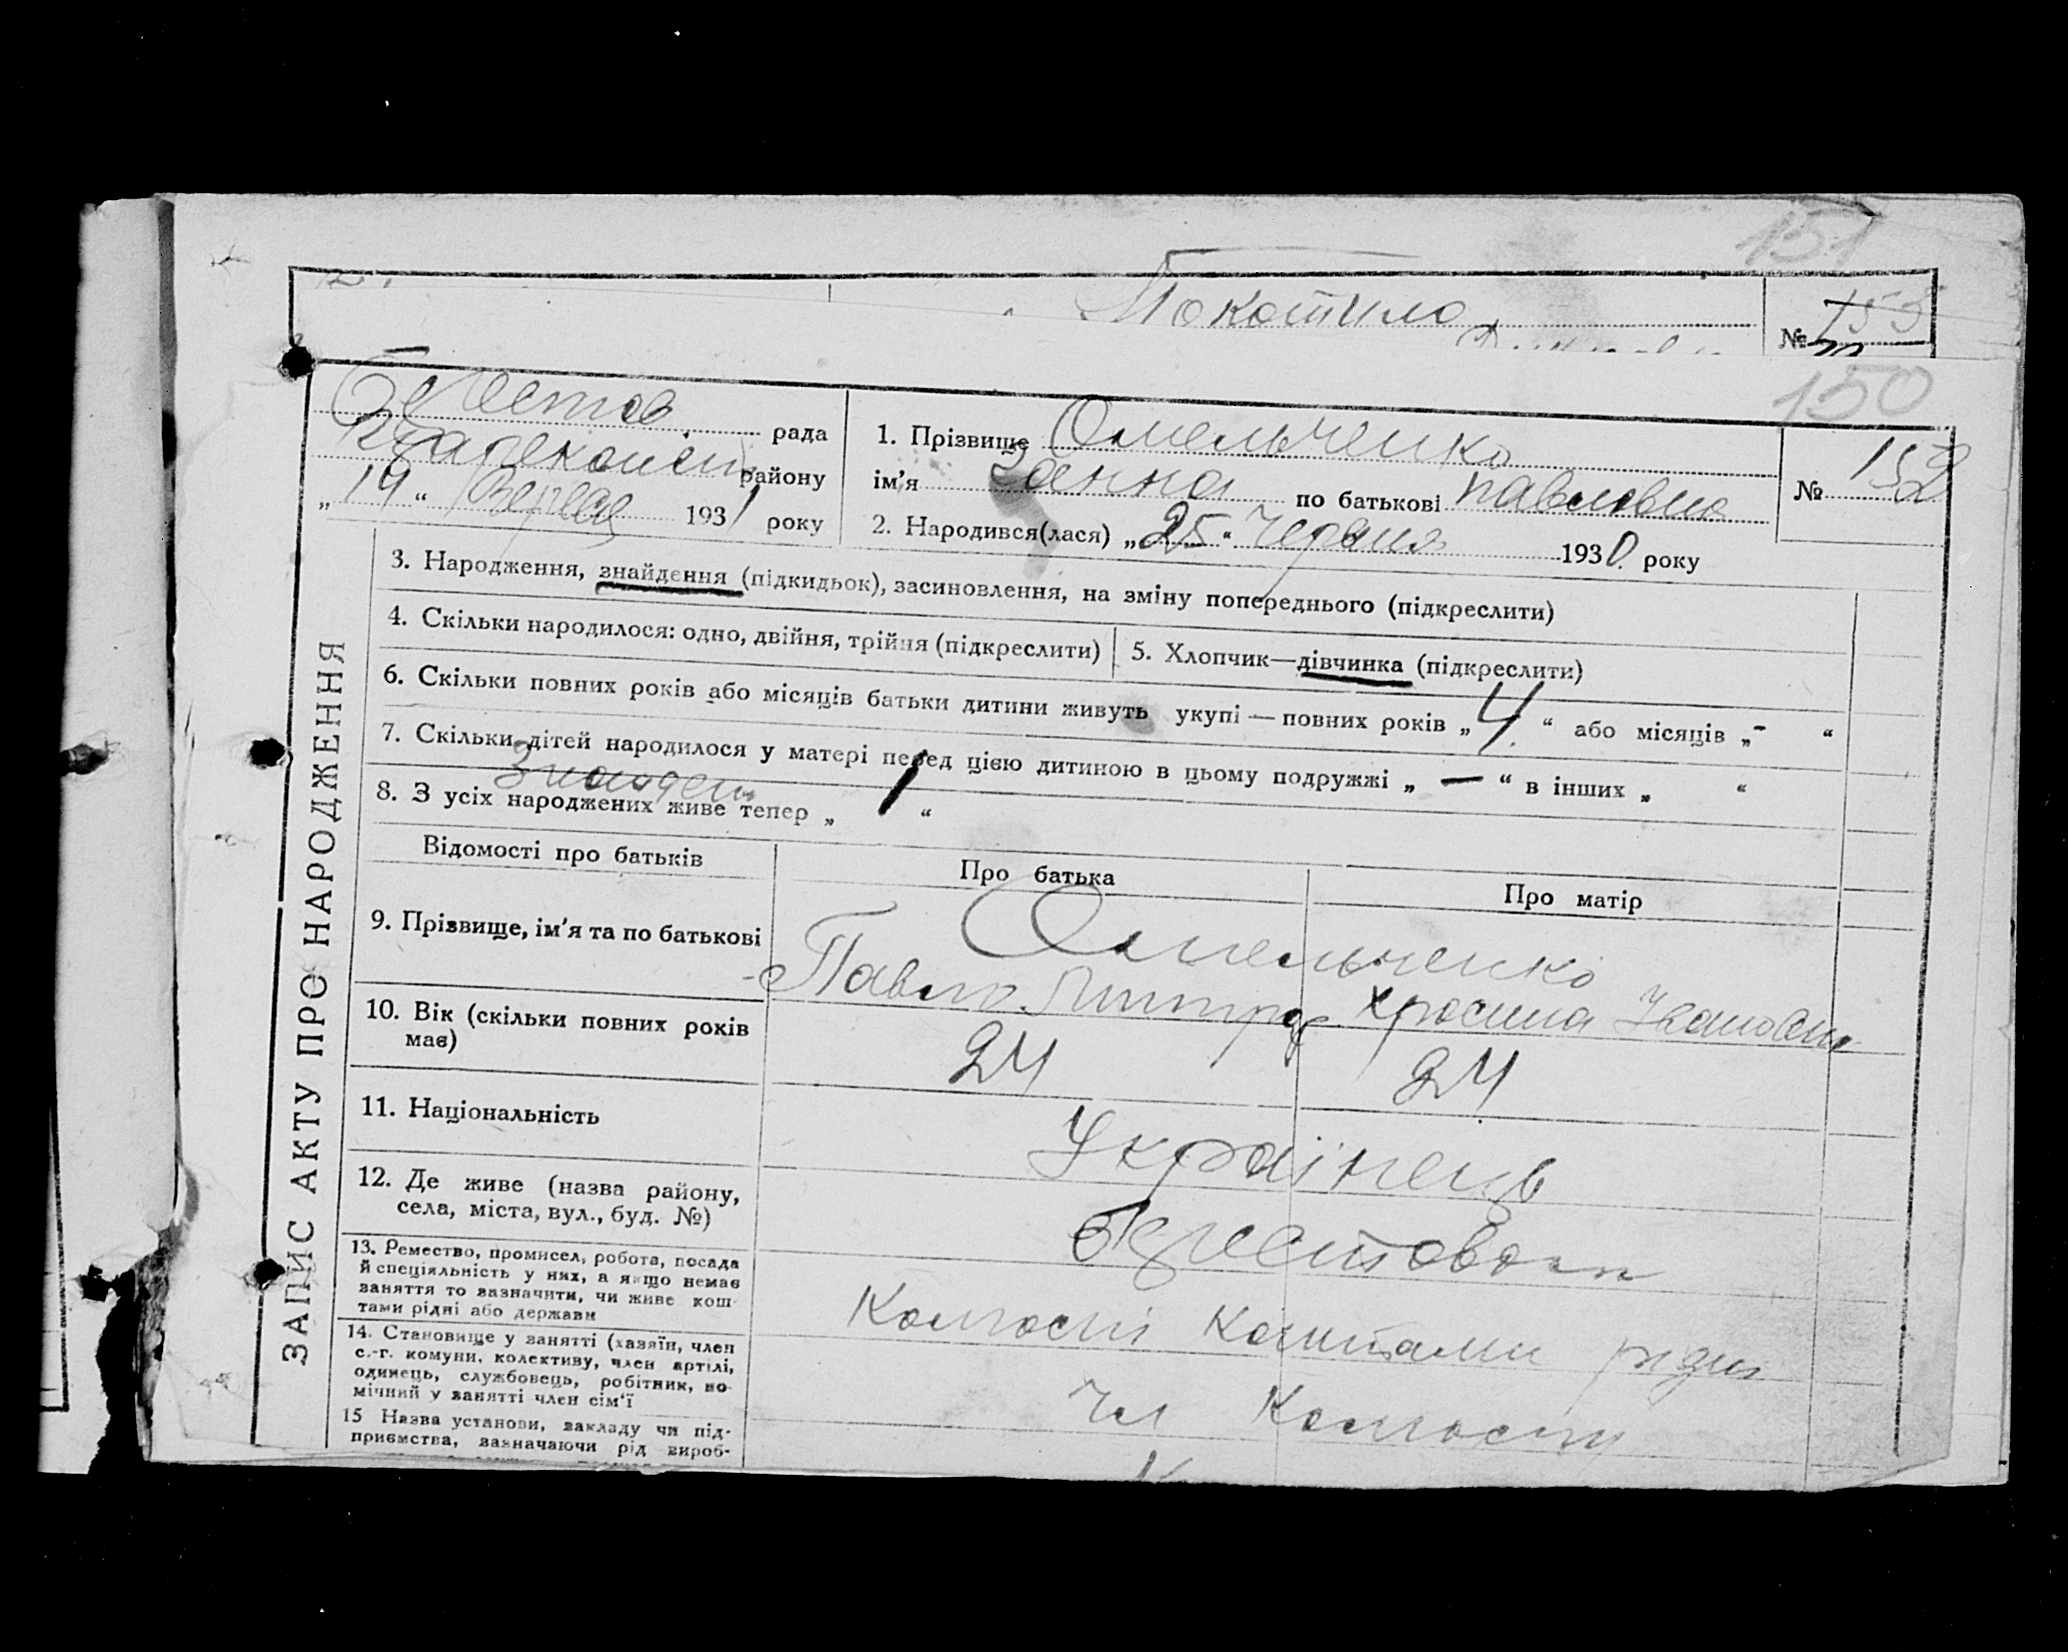 151
Покотило
№ 155
150
рада
району
„ 14 “ Верес 1931 року
1. Прізвище Омельченко
ім’я Ганна по батькові Павловна
2. Народився(лася) „ 25 “ Червня 1930 року
№ 152
ЗАПИС АКТУ ПРО НАРОДЖЕННЯ
3. Народження, знайдення (підкидьок), засиновлення, на зміну попереднього (підкреслити)
4. Скільки народилося: одно, двійня, трійня (підкреслити)
5. Хлопчик—дівчинка (підкреслити)
6. Скільки повних років або місяців батьки дитини живуть укупі — повних років „ 4 “ або місяців „ - “
7. Скільки дітей народилося у матері перед цією дитиною в цьому подружжі „ — “ в інших „ “
8. З усіх народжених живе тепер „ 1 “
Відомості про батьків
Про батька
Про матір
9. Прізвище, ім’я та по батькові
Омельченко
Павло
Івановн
10. Вік (скільки повних років
має)
24
24
11. Національність
Українець
12. Де живе (назва району,
села, міста, вул., буд. №)
13. Ремество, промисел, робота, посада
й спеціяльність у них, а якщо немає
заняття то зазначити, чи живе кош-
тами рідні або держави
Колгоспі Коштами рідні
14. Становище у занятті (хазяїн, член
с.-г. комуни, колективу, член артілі,
одинець, службовець, робітник, по-
мічний у занятті член сім’ї
Чл Колгоспу
15 Назва установи, закладу чи під-
приємства, зазначаючи рід вироб-